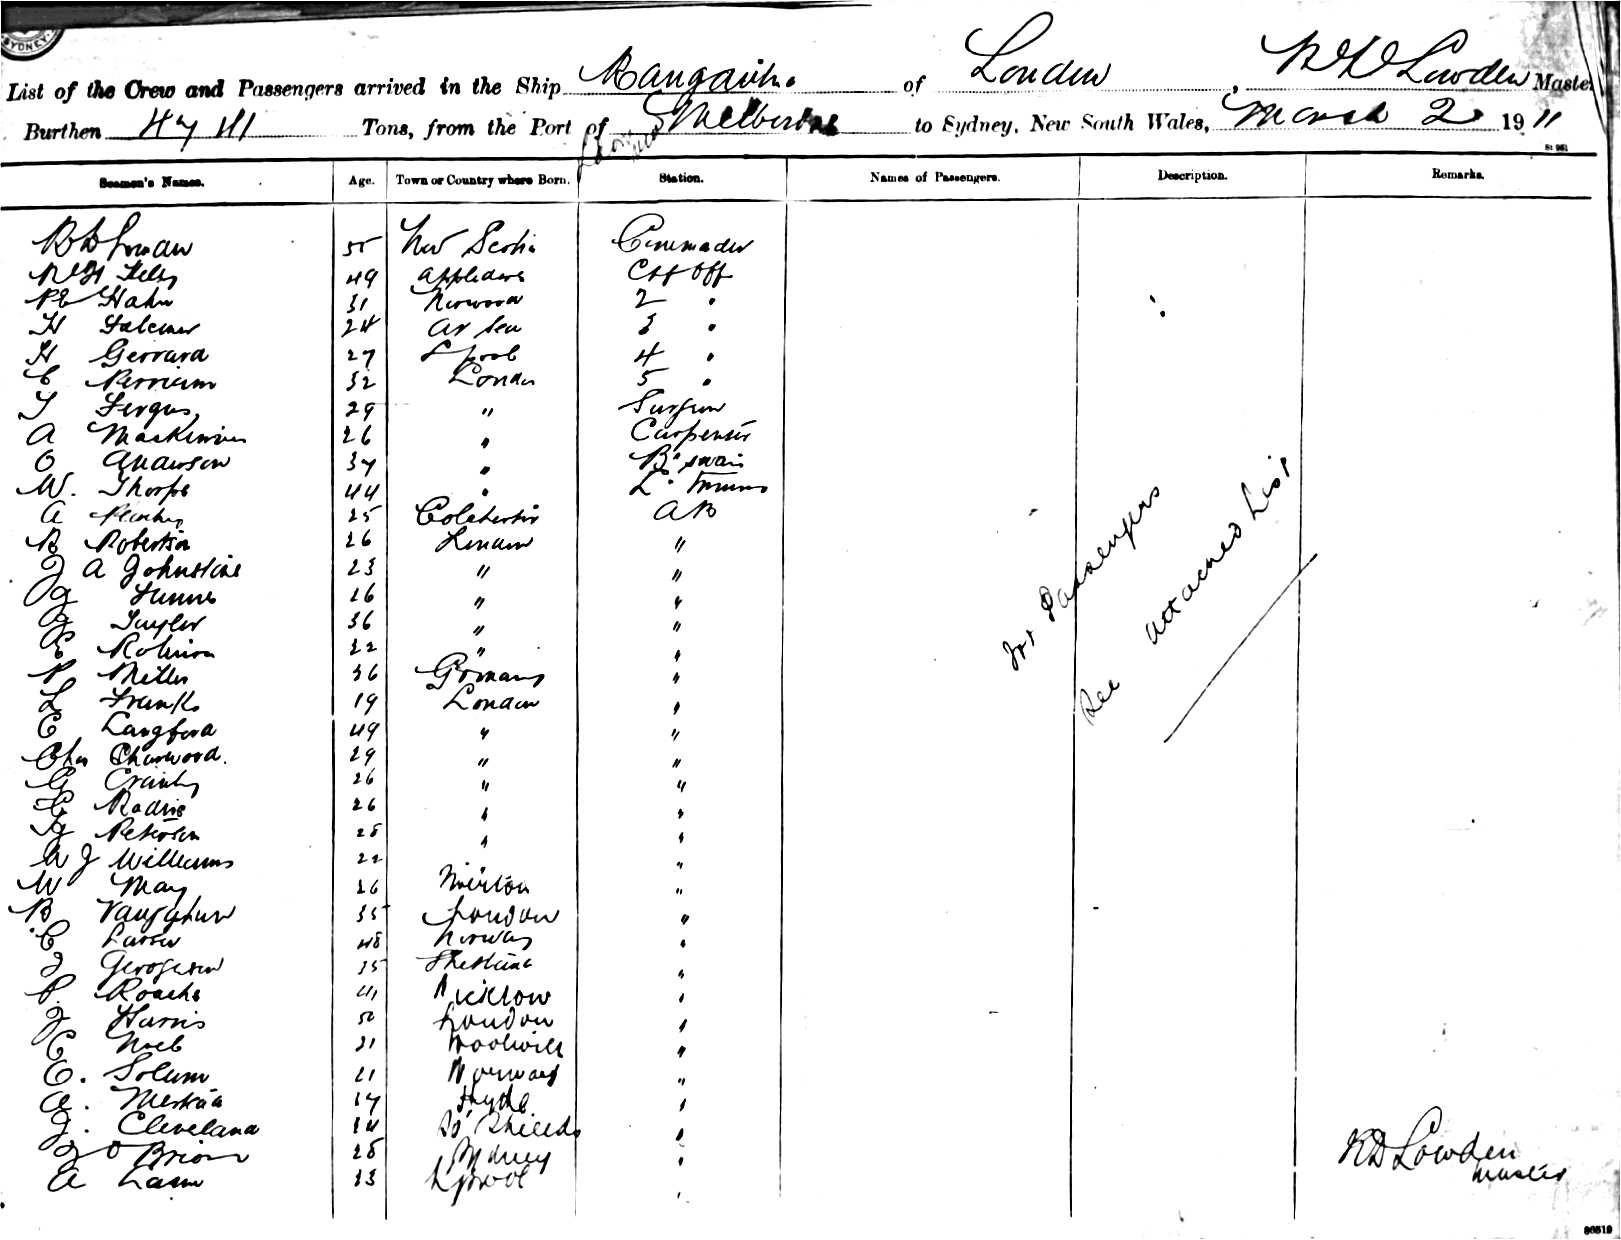 SYDNEY
List of the Crew and Passengers arrived in the Ship of London, R D Lowden Master
Burthen Tons, from the Port of Melbourne to Sydney, New South Wales, March 2 1911
St 961
Seamen's Names. Age. Town or Country where Born. Station. Names of Passengers. Description. Remarks.
55
49 Appledore Off
P E Hahn 31 Norwood 2 "
H 24 At Sea 3 "
H Gerrard 27 L'pool 4 "
C Merriam 32 London 5 "
T Fergus 29 " Surgeon
A MacKinnon 26 " Carpenter
O Anderson 37 " Bo'swain
W. Thorpe 44 " Lp Trimmer
A 25 Colchester AB
R Robertson 26 London "
J A Johnstone 23 " "
J 26 " "
J Taylor 36 " "
C Robinson 22 " "
P Miller 36 Germany "
L Franks 19 London "
C Langford 49 " "
Chas Charwood. 29 " "
G 26 " "
C 26 " "
J Peterson 28 " "
W J Williams 22 "
W May 26 "
R Vaughan 35 London "
C Larsen 48 Norway "
J 35 "
P. Roache 41 Wicklow "
J Harris 50 London "
C Noel 21 Woolwich "
C. Solum 21 "
A. 17 Hythe "
J. Cleveland 24 So' Shields "
J O Brien 28 Sydney "
A 23 L'pool "
For Passengers
See attached List
R D Lowden
Master
86519